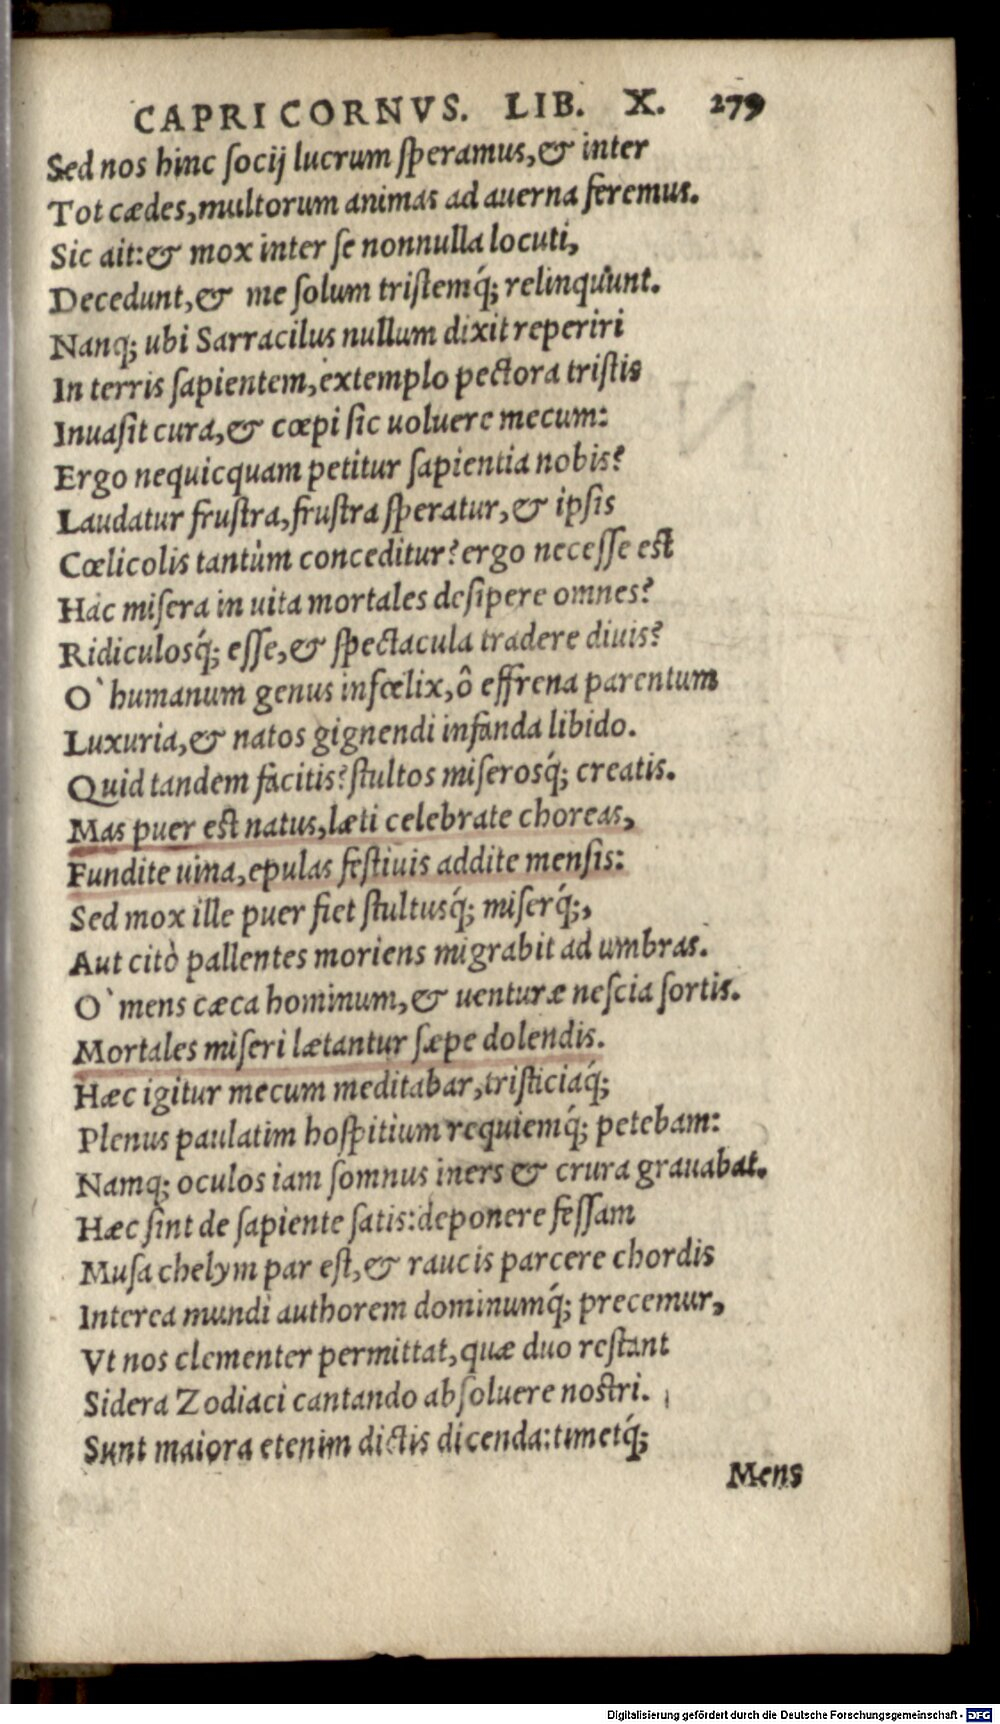 CAPRICORNVS. LIB. X. 279
Sed nos hinc ſocij lucrum ſperamus, & inter
Tot cædes, multorum animas ad auerna feremus.
Sic ait: & mox inter ſe nonnulla locuti,
Decedunt, & me ſolum triſtemq́; relinquunt.
Nanq; ubi Sarracilus nullum dixit reperiri
In terris ſapientem, extemplo pectora triſtis
Inuaſit cura, & cœpi ſic uoluere mecum:
Ergo nequicquam petitur ſapientia nobis?
Laudatur fruſtra, fruſtra ſperatur, & ipſis
Cœlicolis tantùm conceditur? ergo neceſſe eſt
Hac miſera in uita mortales deſipere omnes?
Ridiculosq́; eſſe, & ſpectacula tradere diuis?
O` humanum genus infœlix, ô effrena parentum
Luxuria, & natos gignendi infanda libido.
Quid tandem facitis? ſtultos miſerosq́; creatis.
Mas puer eſt natus, læti celebrate choreas,
Fundite uina, epulas feſtiuis addite menſis:
Sed mox ille puer fiet ſtultusq́; miſerq́;,
Aut citò pallentes moriens migrabit ad umbras.
O` mens cæca hominum, & uenturæ neſcia ſortis.
Mortales miſeri lætantur ſæpe dolendis.
Hæc igitur mecum meditabar, triſticiaq́;
Plenus paulatim hoſpitium requiemq́; petebam:
Namq; oculos iam ſomnus iners & crura grauabat.
Hæc ſint de ſapiente ſatis: deponere feſſam
Muſa chelym par eſt, & raucis parcere chordis
Interea mundi authorem dominumq́; precemur,
Vt nos clementer permittat, quæ duo reſtant
Sidera Zodiaci cantando abſoluere noſtri.
Sunt maiora etenim dictis dicenda: timetq́;
Mens
Digitalisierung gefördert durch die Deutsche Forschungsgemeinschaft - DFG